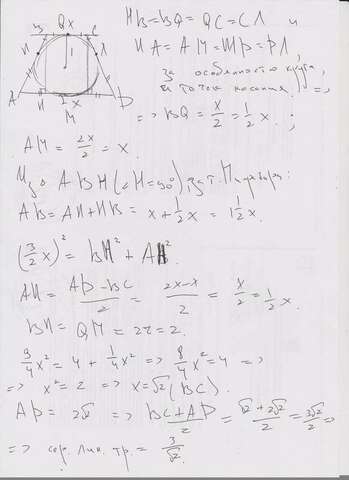 x Q x C
И Л
1
A И 2x D
M
ИB = BQ = QC = CЛ и
ИA = AM = MD = DЛ,
за особеностю круга,
точок касания. =>
=> BQ = x/2 = 1/2 x. ;
AM = 2x/2 = x.
Из Δ ABH (∠H=90°), за т. Пифагора:
AB = AИ + ИB = x + 1/2 x = 1 1/2 x.
(3/2 x)² = BH² + AH².
AH = (AD - BC)/2 = (2x - x)/2 = x/2 = 1/2 x.
BH = QM = 2r = 2.
9/4 x² = 4 + 1/4 x² => 8/4 x² = 4 =>
=> x² = 2 => x = √2 (BC).
AD = 2√2 => (BC + AD)/2 = (√2 + 2√2)/2 = 3√2/2 =>
=> сер. лин. тр. = 3/√2.